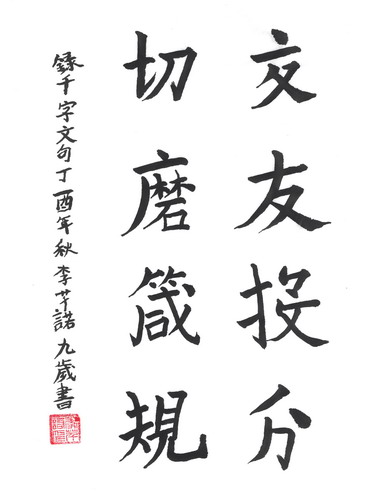 交友投分
切磨箴規
錄千字文句丁酉年秋李芊諾九歲書